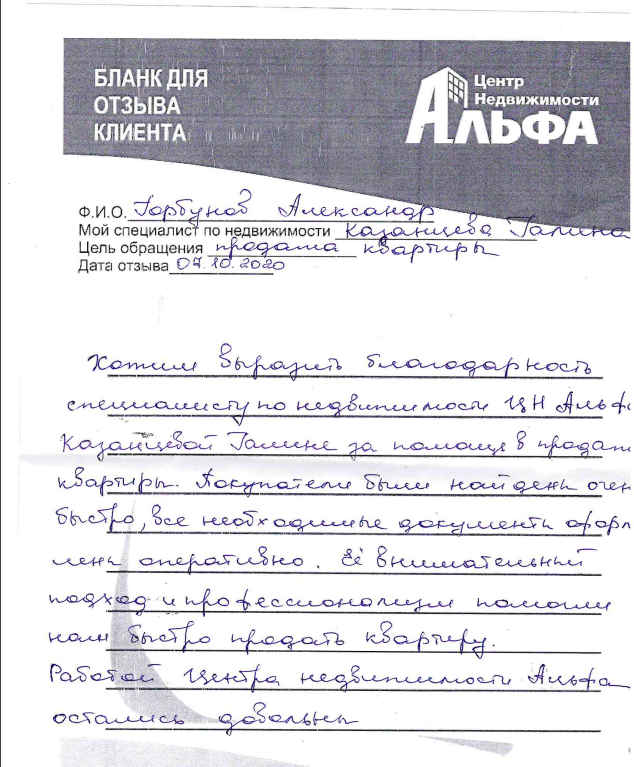 БЛАНК ДЛЯ
ОТЗЫВА
КЛИЕНТА
Центр
Недвижимости
АЛЬФА
Ф.И.О. Горбунов Александр
Мой специалист по недвижимости Казанцева Галина
Цель обращения продажа квартиры
Дата отзыва 07.10.2020
Хотим выразить благодарность
специалисту по недвижимости ЦН Альфа
Казанцевой Галине за помощь в продаж
квартиры. Покупатели были найдены очен
быстро, все необходимые документы оформ
лены оперативно. Её внимательный
подход и профессионализм помогли
нам быстро продать квартиру.
Работой Центра недвижимости Альфа
остались довольны